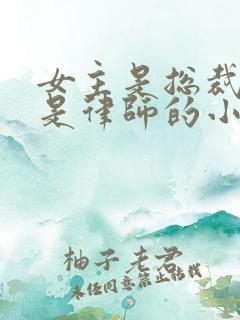 女主是总裁
是律师的小
柚子老君
未经同意禁止转载